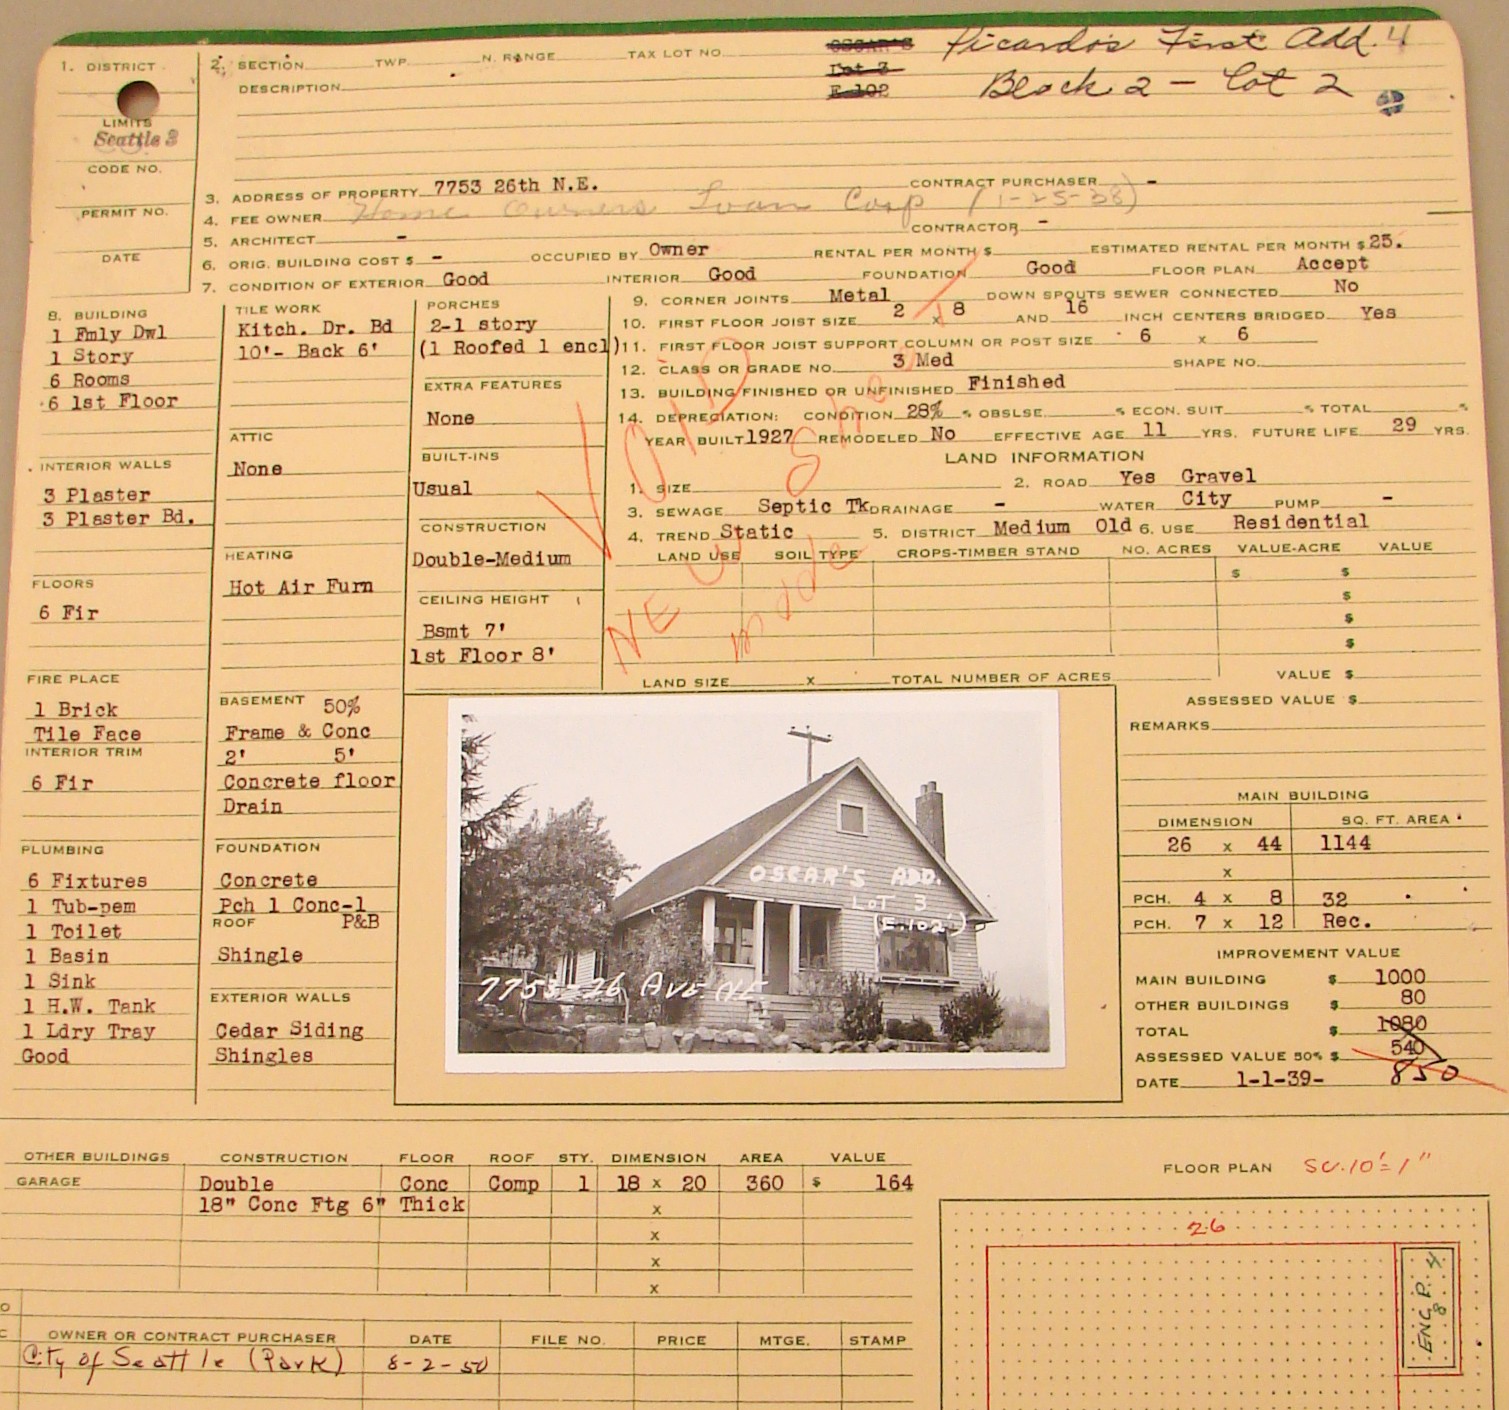 1. DISTRICT
LIMITS
Seattle 3
CODE NO.
PERMIT NO.
DATE
2. SECTION TWP. N. RANGE TAX LOT NO. OSCAR'S Picardo's First Add. 4
DESCRIPTION Lot 3
E-102 Block 2 - Lot 2
3. ADDRESS OF PROPERTY 7753 26th N.E. CONTRACT PURCHASER -
4. FEE OWNER Home Owners Loan Corp (1-25-38)
5. ARCHITECT - CONTRACTOR -
6. ORIG. BUILDING COST $ - OCCUPIED BY Owner RENTAL PER MONTH $ ESTIMATED RENTAL PER MONTH $ 25.
7. CONDITION OF EXTERIOR Good INTERIOR Good FOUNDATION Good FLOOR PLAN Accept
8. BUILDING
1 Fmly Dwl
1 Story
6 Rooms
6 1st Floor
INTERIOR WALLS
3 Plaster
3 Plaster Bd.
FLOORS
6 Fir
FIRE PLACE
1 Brick
Tile Face
INTERIOR TRIM
6 Fir
PLUMBING
6 Fixtures
1 Tub-pem
1 Toilet
1 Basin
1 Sink
1 H.W. Tank
1 Ldry Tray
Good
TILE WORK
Kitch. Dr. Bd
10'- Back 6'
ATTIC
None
HEATING
Hot Air Furn
BASEMENT 50%
Frame & Conc
2' 5'
Concrete floor
Drain
FOUNDATION
Concrete
Pch 1 Conc-1
ROOF P&B
Shingle
EXTERIOR WALLS
Cedar Siding
Shingles
PORCHES
2-1 story
(1 Roofed 1 encl)
EXTRA FEATURES
None
BUILT-INS
Usual
CONSTRUCTION
Double-Medium
CEILING HEIGHT
Bsmt 7'
1st Floor 8'
9. CORNER JOINTS Metal DOWN SPOUTS SEWER CONNECTED No
10. FIRST FLOOR JOIST SIZE 2 x 8 AND 16 INCH CENTERS BRIDGED Yes
11. FIRST FLOOR JOIST SUPPORT COLUMN OR POST SIZE 6 x 6
12. CLASS OR GRADE NO. 3 Med SHAPE NO.
13. BUILDING FINISHED OR UNFINISHED Finished
14. DEPRECIATION: CONDITION 28% % OBSLSE. % ECON. SUIT. % TOTAL %
YEAR BUILT 1927 REMODELED No EFFECTIVE AGE 11 YRS. FUTURE LIFE 29 YRS.
VOID
NEW Sheet
made
LAND INFORMATION
1. SIZE 2. ROAD Yes Gravel
3. SEWAGE Septic Tk DRAINAGE - WATER City PUMP -
4. TREND Static 5. DISTRICT Medium Old 6. USE Residential
LAND USE SOIL TYPE CROPS-TIMBER STAND NO. ACRES VALUE-ACRE VALUE
$ $
$
$
$
LAND SIZE x TOTAL NUMBER OF ACRES VALUE $
ASSESSED VALUE $
REMARKS
OSCAR'S ADD.
LOT 3
(E-102')
7753-26 AVE. NE.
MAIN BUILDING
DIMENSION SQ. FT. AREA
26 x 44 1144
x
PCH. 4 x 8 32
PCH. 7 x 12 Rec.
IMPROVEMENT VALUE
MAIN BUILDING $ 1000
OTHER BUILDINGS $ 80
TOTAL $ 1080
ASSESSED VALUE 50% $ 540
DATE 1-1-39- 850
OTHER BUILDINGS CONSTRUCTION FLOOR ROOF STY. DIMENSION AREA VALUE
GARAGE Double Conc Comp 1 18 x 20 360 $ 164
18" Conc Ftg 6" Thick x
x
x
x
OWNER OR CONTRACT PURCHASER DATE FILE NO. PRICE MTGE. STAMP
City of Seattle (Park) 8-2-50
FLOOR PLAN SC. 10'=1"
26
ENC. P. 4
8